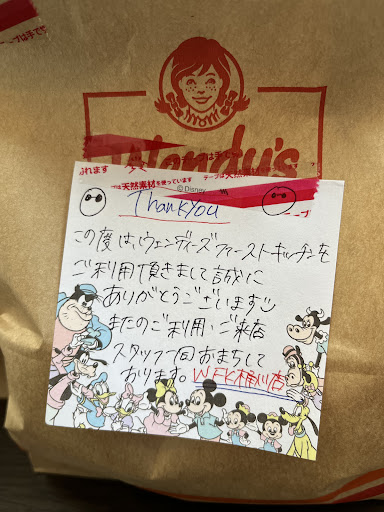 テープは手でち
Wendy's
れます
テープは天然
プは天然素材を使っています
テープは手で
©Disney
Thank you
この度は、ウェンディーズファーストキッチンを
ご利用頂きまして誠に
ありがとうございます
またのご利用・ご来店
スタッフ一同おまちして
おります。WFK桶川店